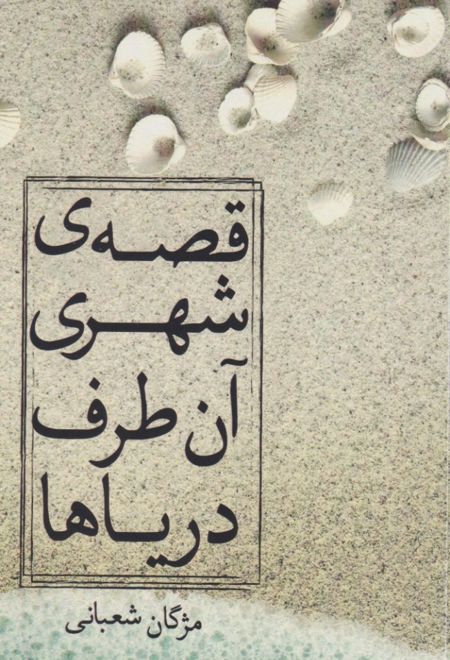 قصه‌ی
شهری
آن طرف
دریاها
مژگان شعبانی